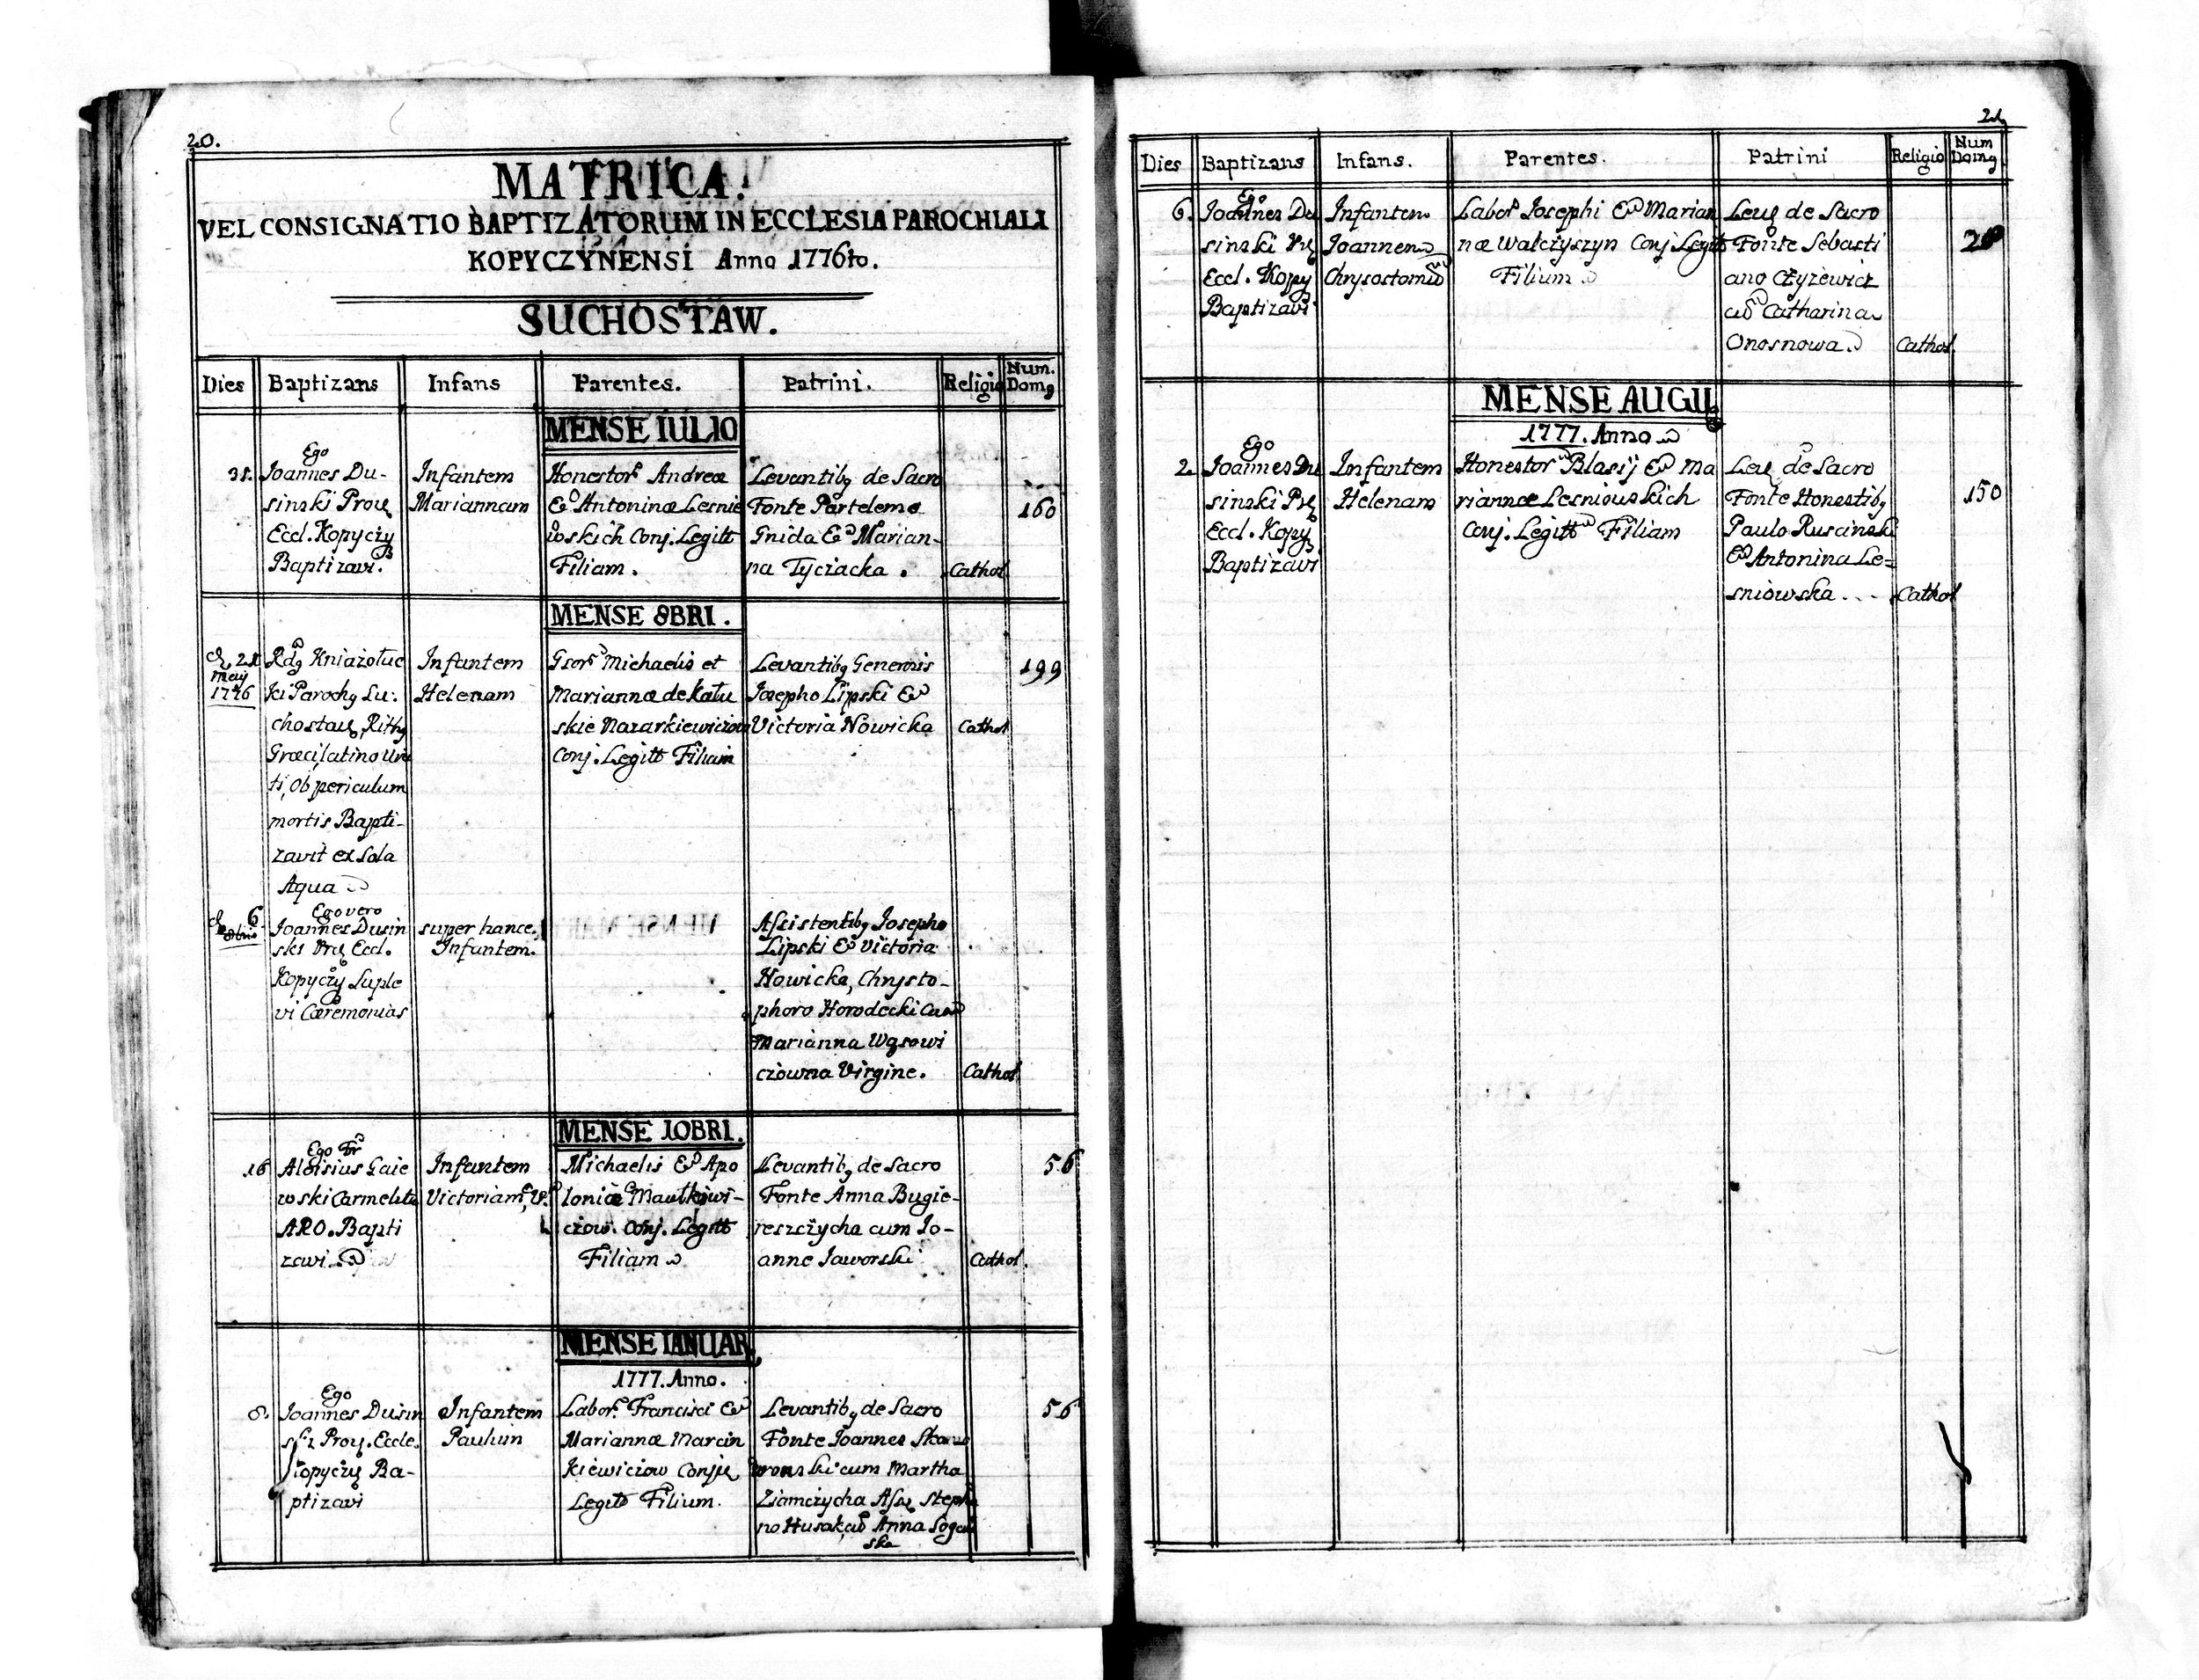 20.
MATRICA.
VEL CONSIGNATIO BAPTIZATORUM IN ECCLESIA PAROCHIALI
KOPYCZYNENSI Anno 1776to.
SUCHOSTAW.
Dies Baptizans Infans Parentes. Patrini. Religio Num. Domq
MENSE IULIO
31.
Ego
Joannes Du-
sinski Prox
Eccl. Kopyczy
Baptizavi.
Infantem
Mariannam
Honestor Andreæ
& Antoninæ Lesnie
wskich Conj. Legitt
Filiam.
Levantibq de Sacro
Fonte Partelemo
Gnida & Marian-
na Tyciacka.
Cathol
160
MENSE 8BRI.
21
May
1776
Rdq Kniazołuc
ki Parochq Su:
chostav, Rithq
Græci, latino Uni
ti, Ob periculum
mortis Bapti-
zavit ex Sola
Aqua
Infantem
Helenam
Gsor Michaelis et
Mariannæ de Katu
skie Nazarkiewiczow
Conj. Legitt Filiam
Levantibq Generosis
Josepho Lipski &
Victoria Nowicka
Cathol
199
6
8bris
Ego vero
Joannes Dusin
ski Prx Eccl.
Kopyczy Suple
vi Cæremonias
super hance
Infantem.
Assistentibq Josepho
Lipski & Victoria
Nowicka, Chrysto-
phoro Horodecki cum
Marianna Wąsowi
czowna Virgine.
Cathol
MENSE 10BRI.
16
Ego Fr
Aloisius Gaie
wski Carmelita
ARO. Bapti
zavi.
Infantem
Victoriam
Michaelis & Apo
loniæ
czow. Conj. Legitt
Filiam
Levantibq de Sacro
Fonte Anna Bugie-
reszczycha cum Jo-
anne Jaworski
Cathol.
56
MENSE IANUAR
1777. Anno.
8.
Ego
Joannes Dusin
ski Prox. Eccle.
Kopyczy Ba-
ptizavi
Infantem
Paulum
Labor. Francisci &
Mariannæ Marcin
kiewiczow Conju
Legitt Filium.
Levantibq de Sacro
Fonte Joannes
cum Martha
Ziamczycha Stepha
no Husak, Anna
ska
56
21
Dies Baptizans Infans. Parentes. Patrini Religio Num Domq
6.
Ego
Joannes Du
sinski Prx
Eccl. Kopy
Baptizavi
Infantem
Joannem
Chrysostomu
Labor Josephi & Marian
næ Walczyszyn Conj Legitt
Filium
Lev de Sacro
Fonte Sebasti
ano Czyzewicz
Catharina
Onosnowa.
Cathol.
MENSE AUGU
1777. Anno
2.
Ego
Joannes Du
sinski Prx
Eccl. Kopy
Baptizavi
Infantem
Helenam
Honestor Blasij & Ma
riannæ Lesniowskich
Conj. Legitt Filiam
Lev de Sacro
Fonte Honestibq
Paulo Ruscinski
& Antonina Le=
sniowska
Cathol
150